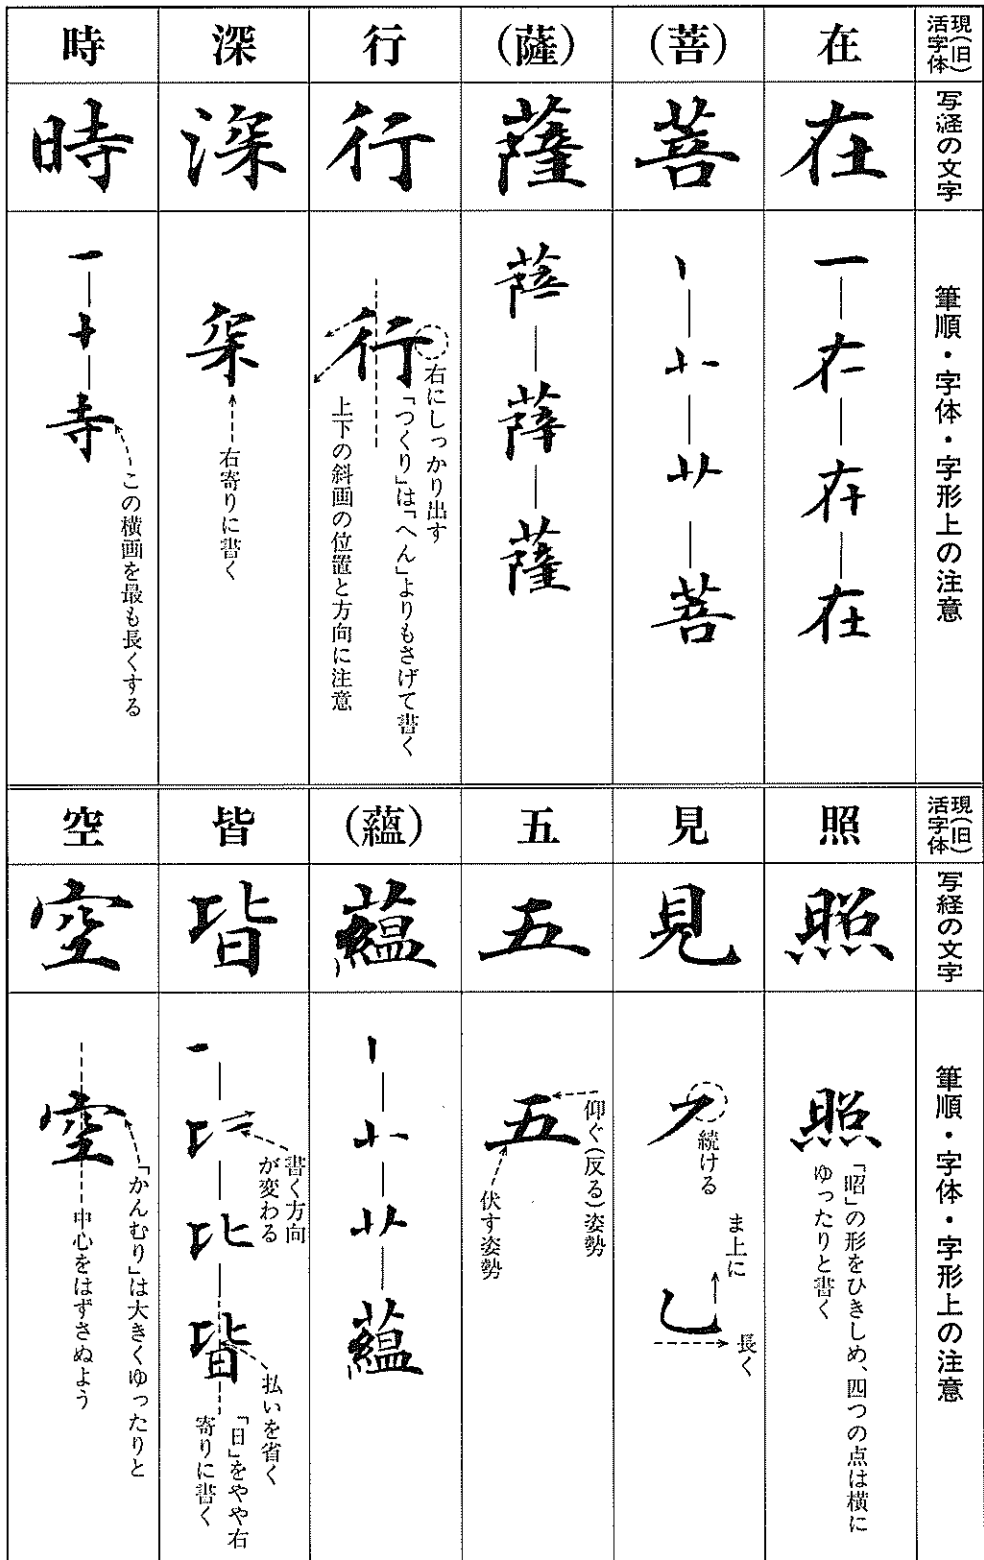 現(旧)活字体
写経の文字
筆順・字体・字形上の注意
在
在
一
在
(菩)
菩
菩
(薩)
薩
薩
行
行
行
右にしっかり出す
「つくり」は「へん」よりもさげて書く
上下の斜画の位置と方向に注意
深
深
右寄りに書く
時
時
一
十
寺
この横画を最も長くする
現(旧)活字体
写経の文字
筆順・字体・字形上の注意
照
照
照
「昭」の形をひきしめ、四つの点は横に
ゆったりと書く
見
見
続ける
ま上に
長く
五
五
五
仰ぐ(反る)姿勢
伏す姿勢
(蘊)
蘊
蘊
皆
皆
一
比
皆
書く方向
が変わる
払いを省く
「日」をやや右
寄りに書く
空
空
空
「かんむり」は大きくゆったりと
中心をはずさぬよう